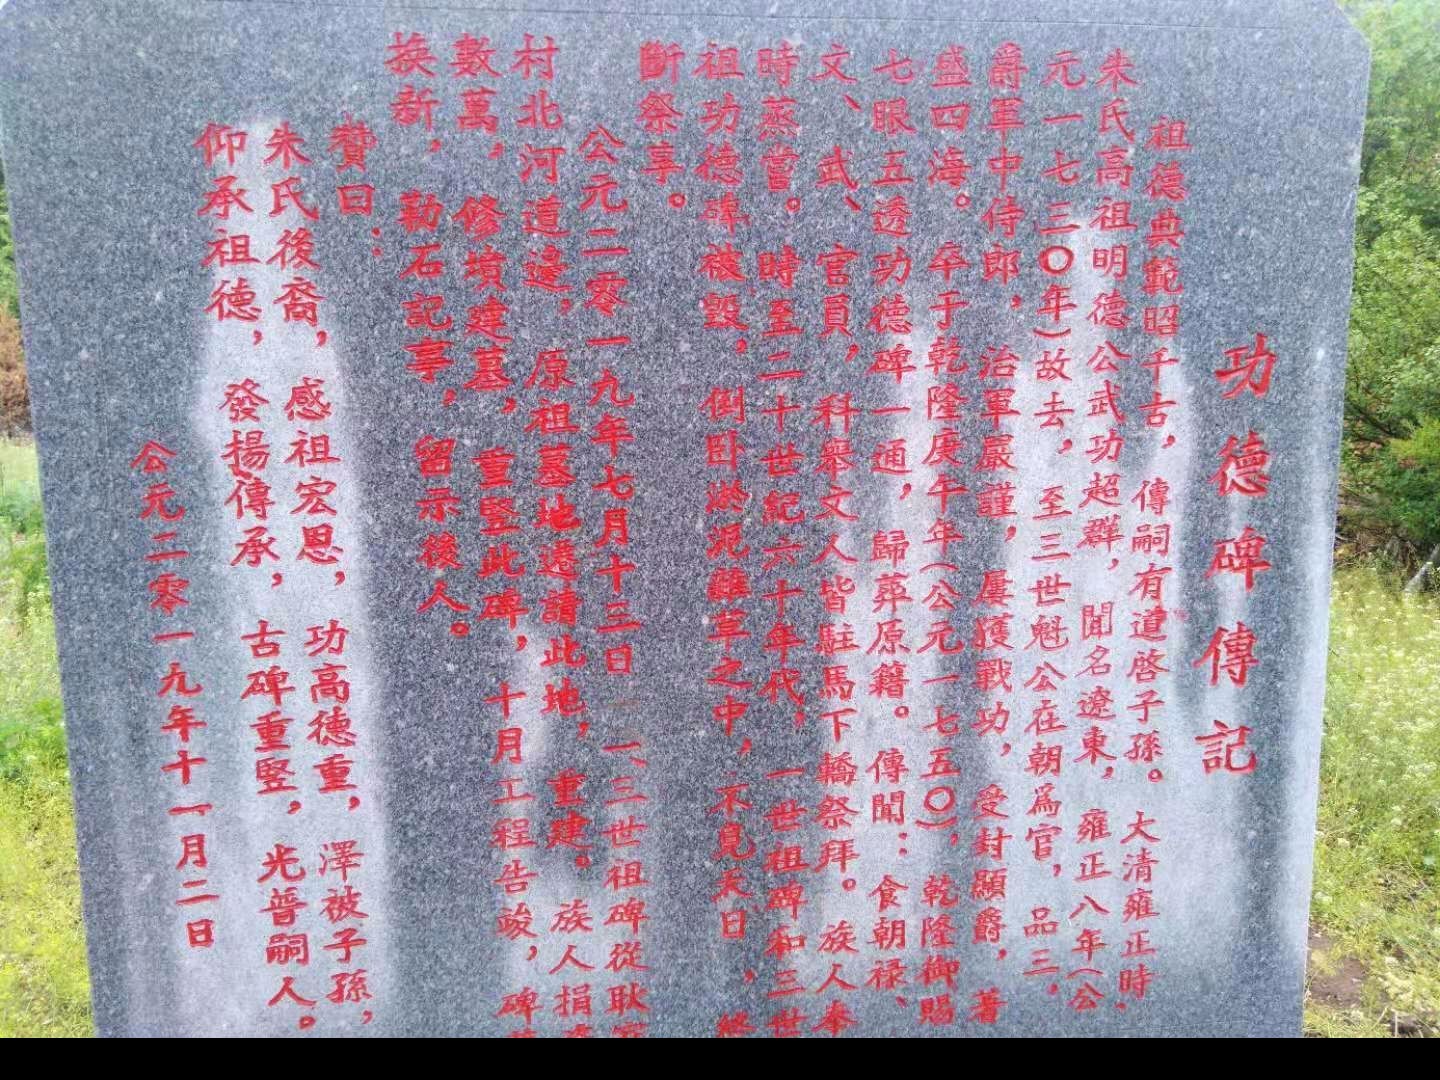 功德碑傳記
祖德典範昭千古，傳嗣有道啓子孫。大清雍正時，
朱氏高祖明德公武功超群，聞名遼東，雍正八年（公
元一七三〇年）故去，至三世魁公在朝爲官，品三，
爵軍中侍郎，治軍嚴謹，屢獲戰功，受封顯爵，著
盛四海。卒于乾隆庚午年（公元一七五〇），乾隆御賜
七眼五透功德碑一通，歸葬原籍。傳聞：食朝禄、
文、武、官員，科舉文人皆駐馬下轎祭拜。族人奉
時蒸嘗。時至二十世紀六十年代，一世祖碑和三世
祖功德碑被毀，倒卧淤泥雜草之中，不見天日，終
斷祭享。
公元二零一九年七月十三日一、三世祖碑從耿家
村北河道邊，原祖墓地遷請此地，重建。族人捐
數萬，修墳建墓，重竪此碑，十月工程告竣，碑
换新，勒石記事，留示後人。
贊曰：
朱氏後裔，感祖宏恩，功高德重，澤被子孫，
仰承祖德，發揚傳承，古碑重竪，光普嗣人。
公元二零一九年十一月二日